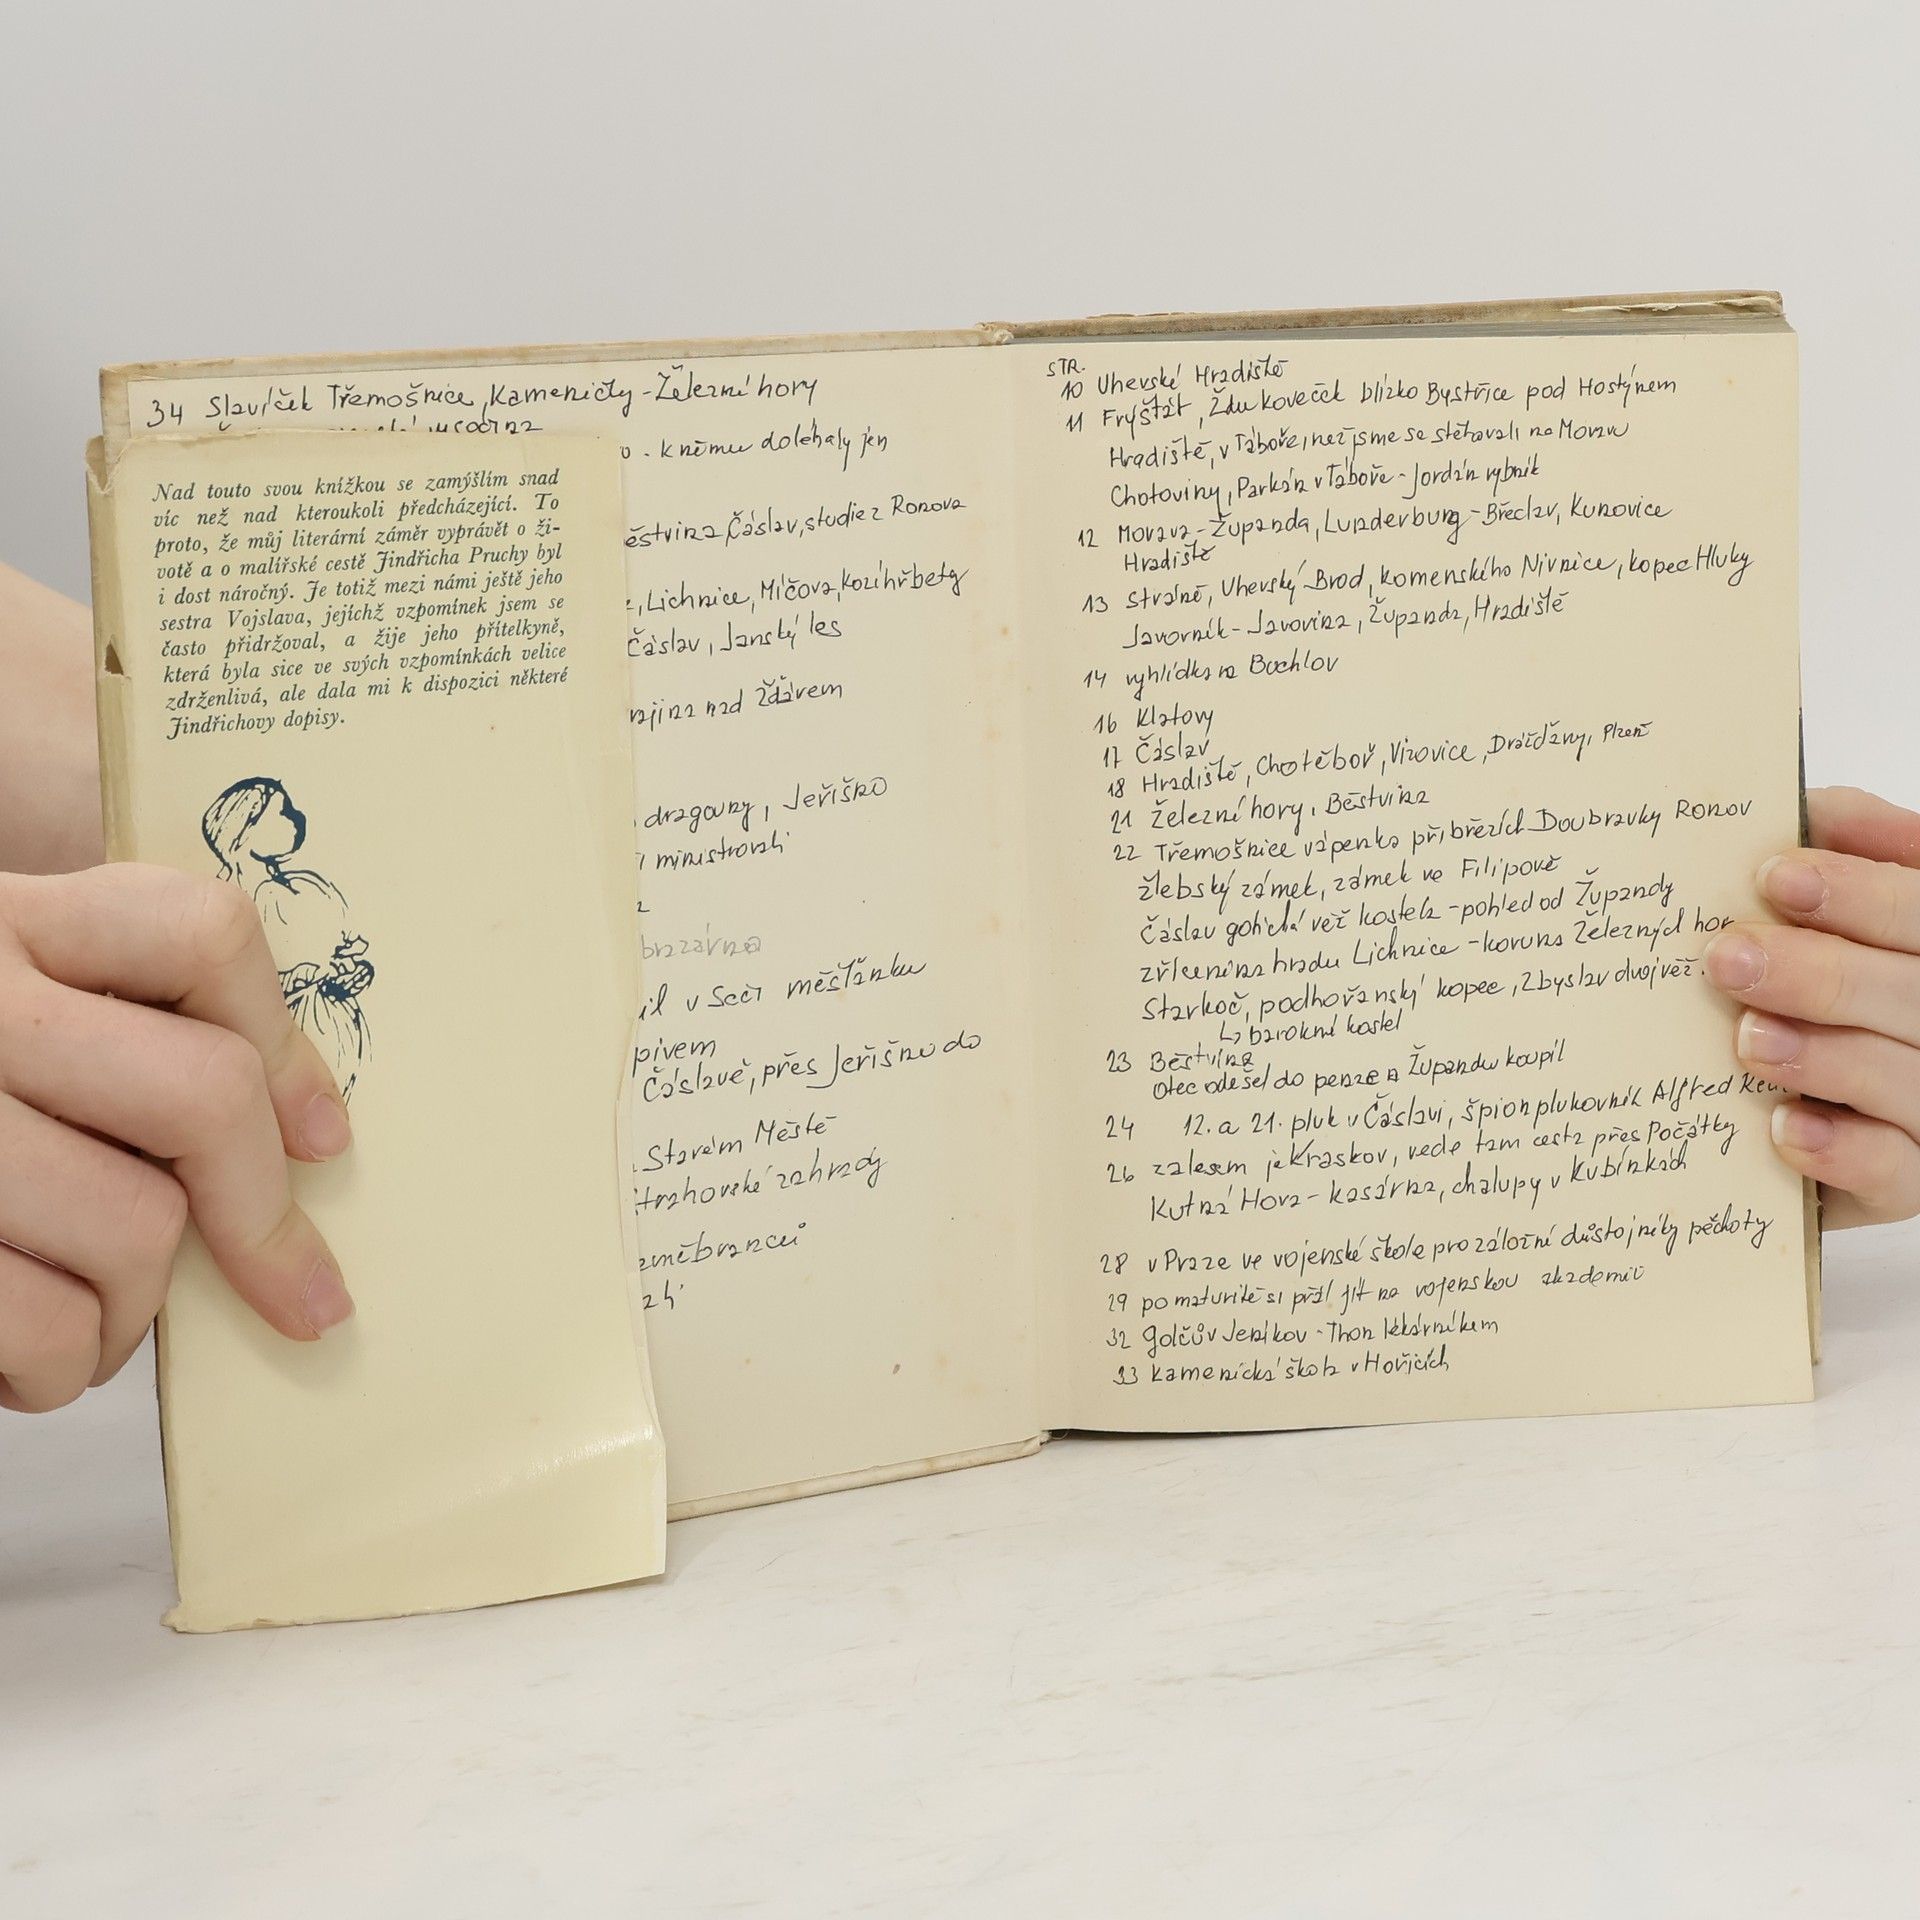 34 Slavíček Třemošnice, Kameničky - Železné hory
Nad touto svou knížkou se zamýšlím snad
víc než nad kteroukoli předcházející. To
proto, že můj literární záměr vyprávět o ži-
votě a o malířské cestě Jindřicha Pruchy byl
i dost náročný. Je totiž mezi námi ještě jeho
sestra Vojslava, jejíchž vzpomínek jsem se
často přidržoval, a žije jeho přítelkyně,
která byla sice ve svých vzpomínkách velice
zdrženlivá, ale dala mi k dispozici některé
Jindřichovy dopisy.
. k němu doléhaly jen
Čáslav, studie z Ronova
, Lichnice, Míčova, Kozíhřbety
Čáslav, Janský les
nad Žďárem
dragouny, Jeřišno
ministrovali
v Seči měšťanku
pivem
Čáslavě, přes Jeřišno do
Starém Městě
zahrady
STR.
10 Uherské Hradiště
11 Fryšták, Žďukoveček blízko Bystřice pod Hostýnem
Hradiště, v Táboře, než jsme se stěhovali na Moravu
Chotoviny, Parkán v Táboře - Jordán rybník
12 Morava - Županda, Lunderburg - Břeclav, Kunovice
Hradiště
13 Strání, Uherský Brod, Komenského Nivnice, kopec Hluky
Javorník - Javorina, Županda, Hradiště
14 vyhlídka na Buchlov
16 Klatovy
17 Čáslav
18 Hradiště, Chotěboř, Vizovice, Drážďany, Plzeň
21 Železné hory, Běstvina
22 Třemošnice vápenka při březích Doubravky Ronov
žlebský zámek, zámek ve Filipově
Čáslav gotická věž kostela - pohled od Župandy
zřícenina hradu Lichnice - koruna Železných hor
Starkoč, podhořanský kopec, Zbyslav dvojvěž.
↳ barokní kostel
23 Běstvina
otec odešel do penze a Župandu koupil
24 12. a 21. pluk v Čáslavi, špion plukovník Alfred
26 za lesem je Kraskov, vede tam cesta přes Počátky
Kutná Hora - kasárna, chalupy v Kubínkách
28 v Praze ve vojenské škole pro záložní důstojníky pěchoty
29 po maturitě si přál jít na vojenskou akademii
32 Golčův Jeníkov - Thon lékárníkem
33 kamenická škola v Hořicích